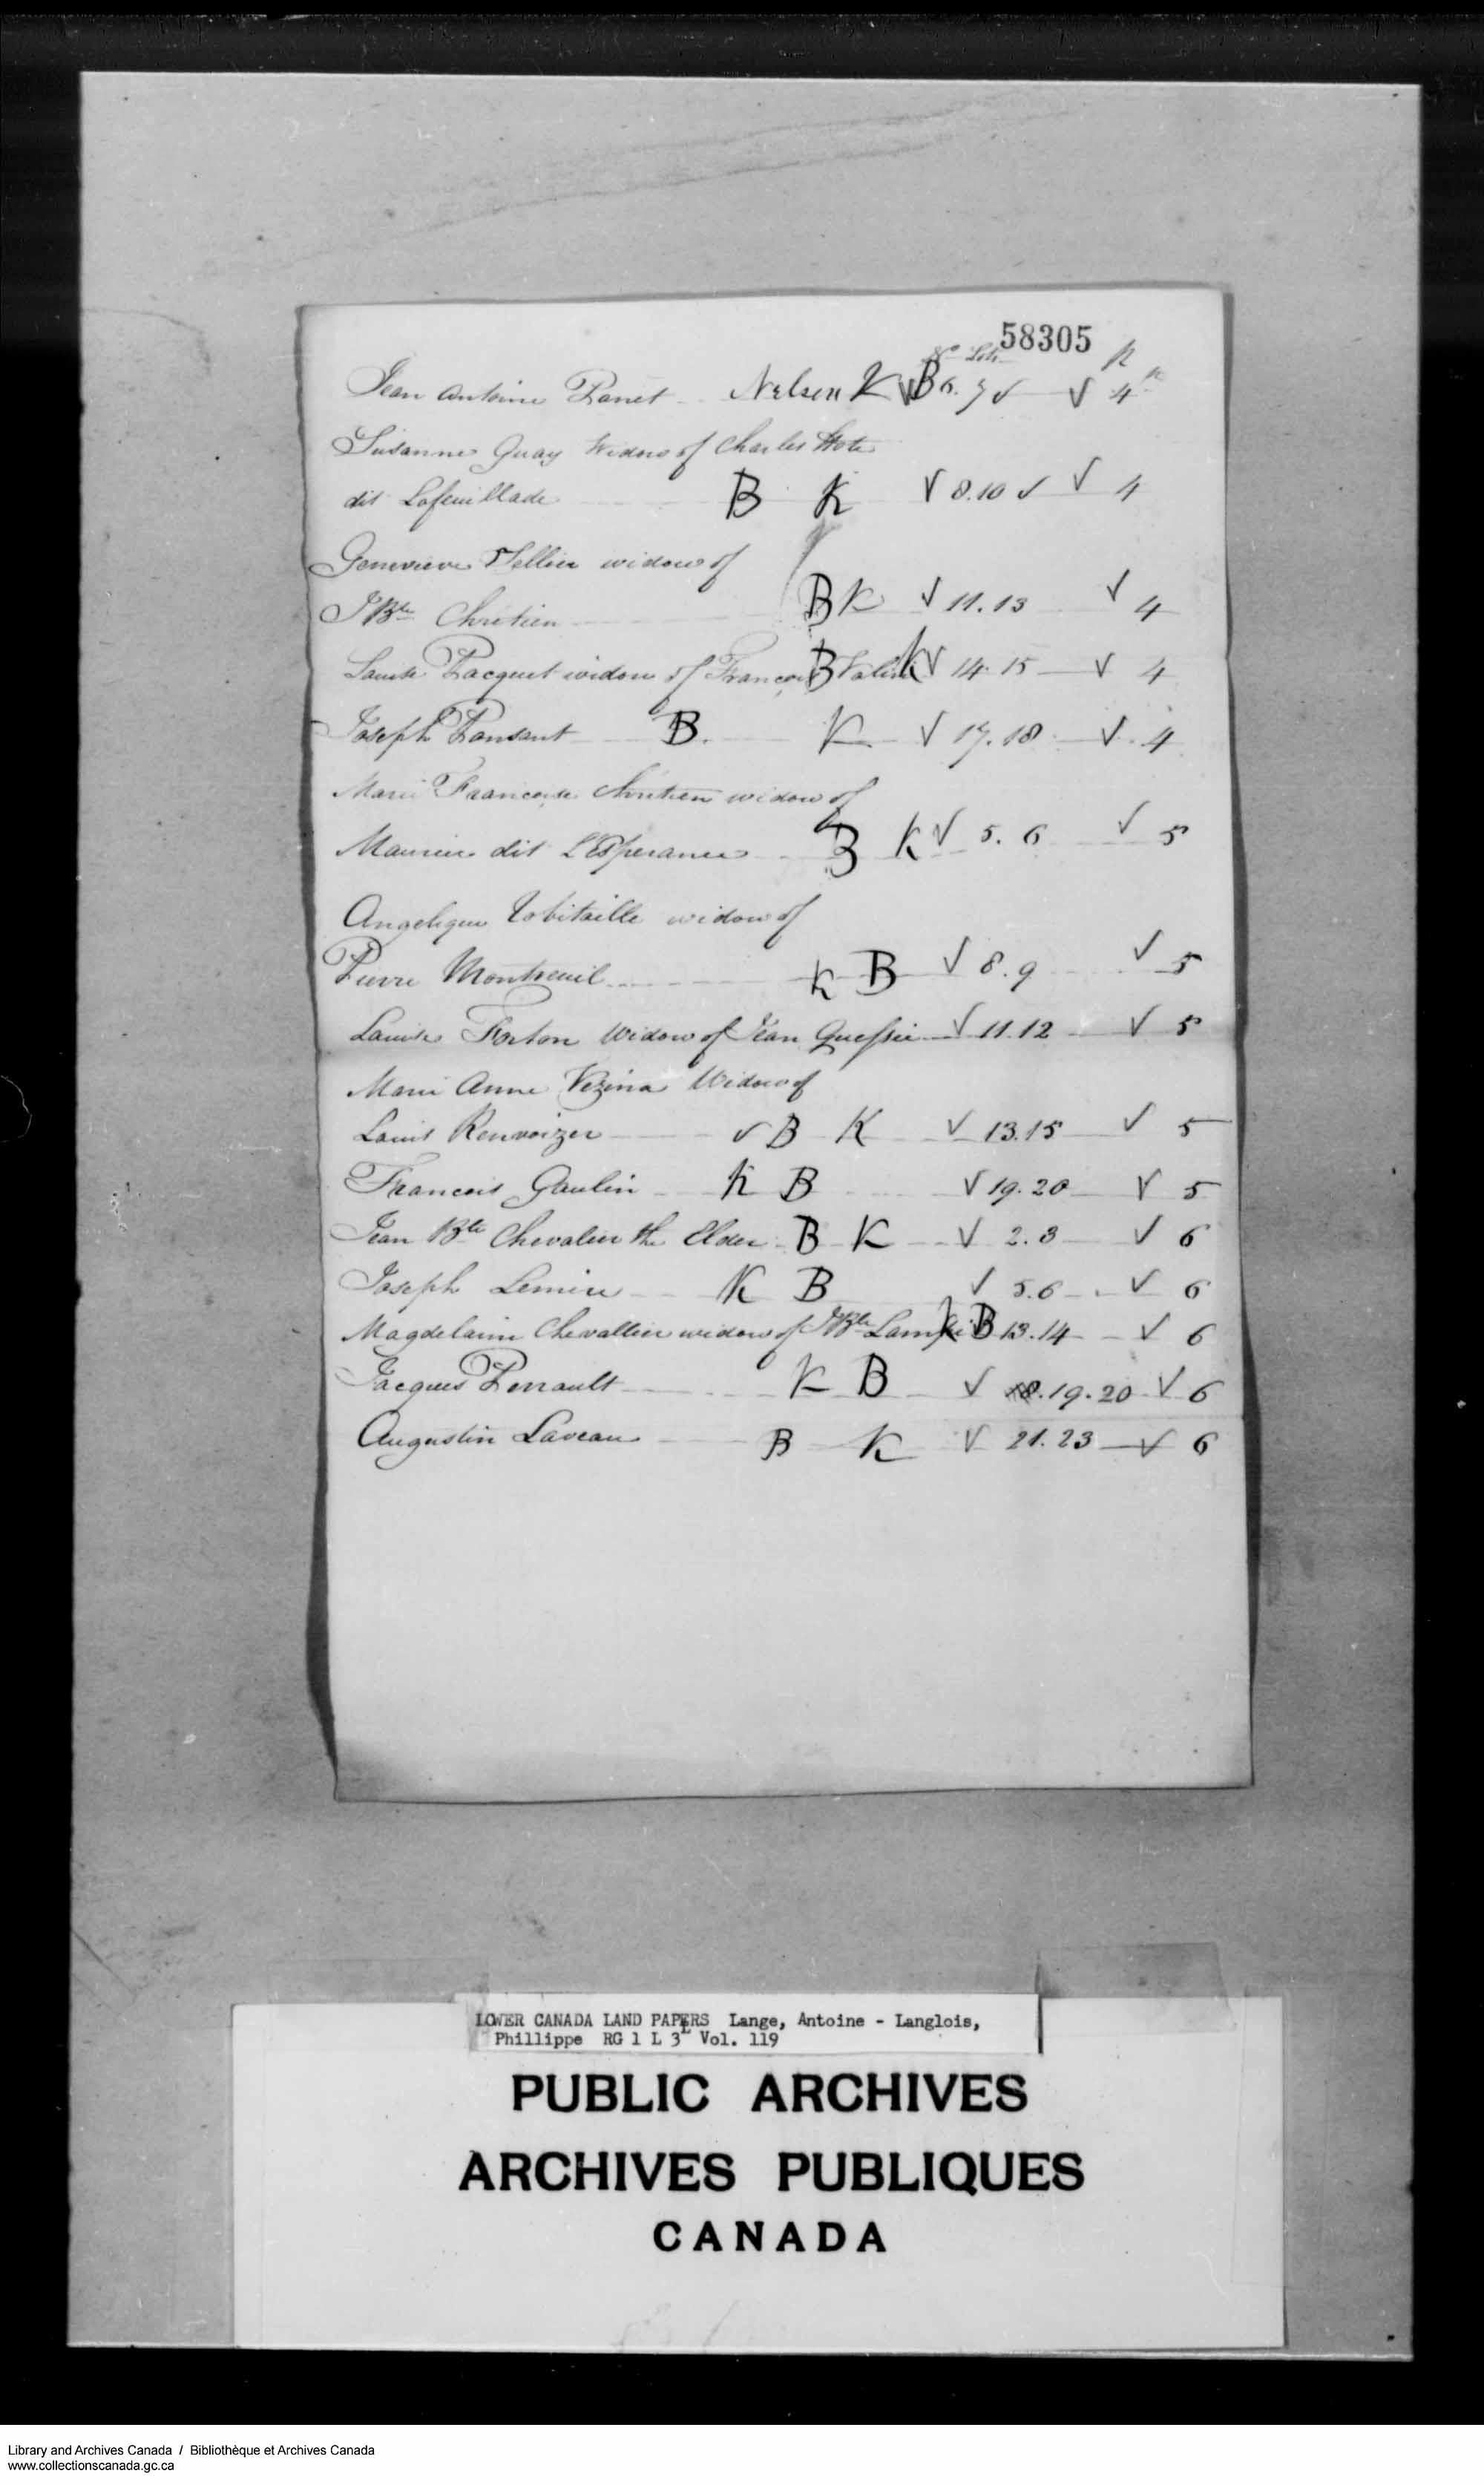 58305
No Lots R
Jean Antoine Panet Nelson K √ B 6. 7 √ √ 4
Susanne Guay Widow of Charles
dit Lafeuillade B K √ 8.10 √ √ 4
Genevieve Tellier widow of
J Bte Chretien B K √ 11.13 √ 4
Louise Pacquet widow of Francois B Valin K √ 14.15 √ 4
Joseph Ponsant B. K √ 17.18 √ 4
Marie Francoise Chretien widow of
Maurice dit L'Esperance B K √ 5. 6 √ 5
Angelique Robitaille widow of
Pierre Montreuil K B √ 8. 9 √ 5
Louise Forton Widow of Jean √ 11.12 √ 5
Marie Anne Vezina Widow of
Louis Renvoizer √ B K √ 13.15 √ 5
Francois Gaulin K B √ 19.20 √ 5
Jean Bte Chevalier the Elder B K √ 2.3 √ 6
Joseph Lemire K B √ 5.6 √ 6
Magdelaine Chevallier widow of J Bte K B 13.14 √ 6
Jacques Perrault K B √ 19.20 √ 6
Augustin Laveau B K √ 21.23 √ 6
LOWER CANADA LAND PAPERS Lange, Antoine - Langlois,
Phillippe RG 1 L 3L Vol. 119
PUBLIC ARCHIVES
ARCHIVES PUBLIQUES
CANADA
Library and Archives Canada / Bibliothèque et Archives Canada
www.collectionscanada.gc.ca